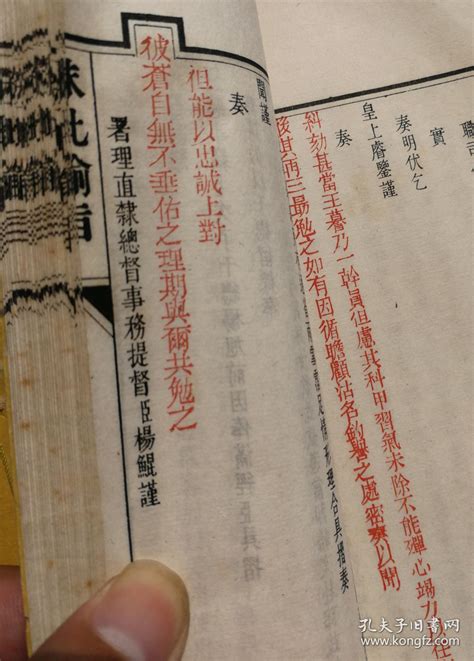 職司
實
奏明伏乞
皇上睿鑒謹
奏
糾劾甚當王謩乃一幹員但慮其科甲習氣未除不能殫心竭力以任
其再三勗勉之如有因循瞻顧沽名釣譽之處密奏以聞
謹
奏
但能以忠誠上對
彼蒼自無不垂佑之理期與爾共勉之
署理直隸總督事務提督臣楊鯤謹
硃批諭旨
孔夫子旧书网
kongfz.com